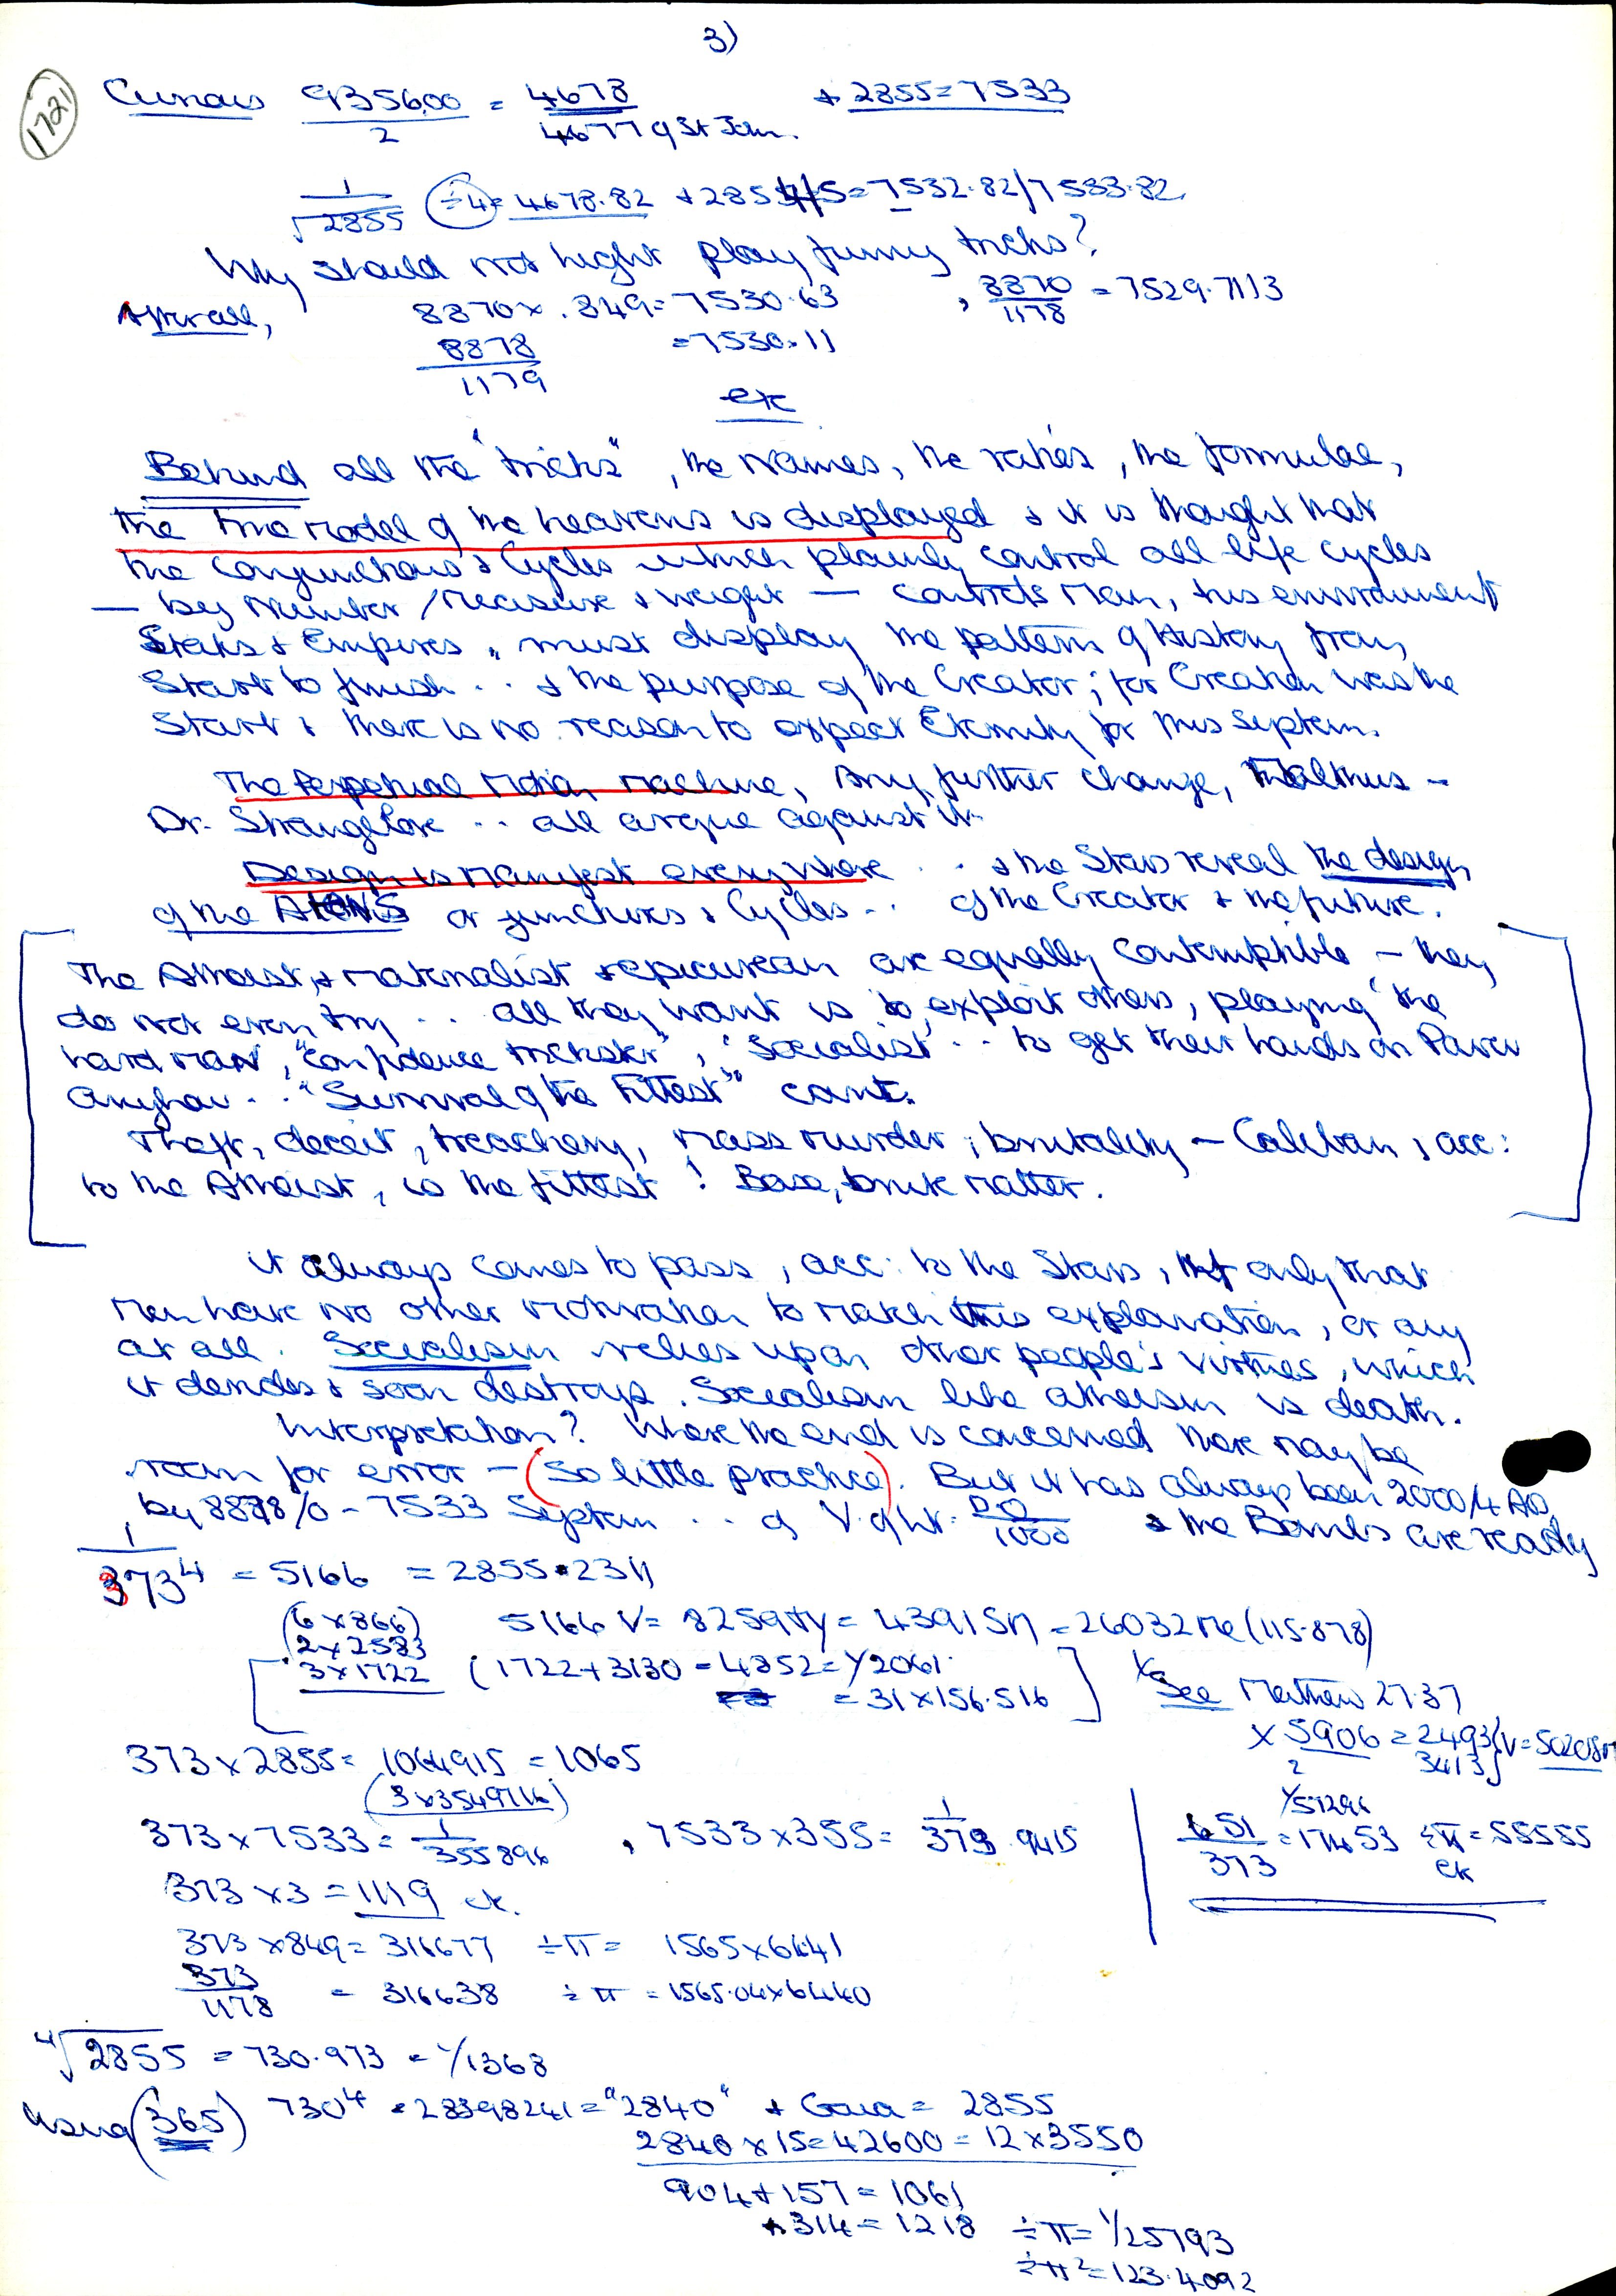 3)
1721
Cunaus 9356.00 / 2 = 4678 / 4677 of St John. + 2855 = 7533
1 / √2855 ÷ 4 = 4678.82 + 2854/5 = 7532.82/7533.82
Why should not light play funny tricks?
After all, 8870 x .849 = 7530.63 , 8870 / 1178 = 7529.7113
8878 / 1179 = 7530.11
etc
Behind all the "tricks", the Names, the ratios, the formulae,
the true model of the heavens is displayed & it is thought that
the Conjunctions & Cycles which plainly control all life cycles
— by Number / Measure & weight — controls Man, his environment
States & Empires, must display the pattern of History from
Start to finish .. & the purpose of the Creator; for Creation was the
Start & there is no reason to expect Eternity for this System.
The Perpetual Motion Machine, Any further change, Malthus -
Dr. Strangelove .. all argue against it.
Design is Manifest everywhere .. & the Stars reveal the design
of the Atoms or junctures & Cycles .. of the Creator & the future.
The Atheist, & materialist & epicurean are equally contemptible - they
do not even try .. all they want is to exploit others, playing "the
hard man", "confidence trickster", "Socialist" .. to get their hands on Power
Anyhow .. "Survival of the Fittest" cant.
Theft, deceit, treachery, mass murder, brutality - Caliban, acc:
to the Atheist, is the fittest! Base, brute Matter.
it always comes to pass, acc: to the Stars, not only that
Men have no other motivation to match this explanation, or any
at all. Socialism relies upon other people's virtues, which
it derides & soon destroys. Socialism like atheism is death.
Interpretation? Where the end is concerned there may be
room for error - (so little practice). But it has always been 2000/4 AD,
by 8878/0 - 7533 System .. & the Bombs are ready
1 / 373⁴ = 5166 = 2855 + 2311
(6 x 866) 5166 V = 8259 = 4391 = 26032 Me (115.878)
2 x 2583
3 x 1722 (1722 + 3130 = 4852 = 1/2061
= 31 x 156.516
See Matthew 27.37
x 5906 / 2 = 2493 / 3413
373 x 2855 = 1064915 = 1065
(3 x 3549716)
373 x 7533 = 1 / 355896 , 7533 x 355 = 1 / 373.9415
651 / 373 = 17453 1/57296 ÷ π = 55555
etc
373 x 3 = 1119 etc.
373 x 849 = 316677 ÷ π = 1565 x 6441
373 / 1178 = 316638 ÷ π = 1565.04 x 6440
⁴√2855 = 730.973 = 1/1368
Using (365) 730⁴ = 28398241 = "2840" + Gaia = 2855
2840 x 15 = 42600 = 12 x 3550
904 + 157 = 1061
+ 314 = 1218 ÷ π = 1/25793
÷ π² = 123.4092